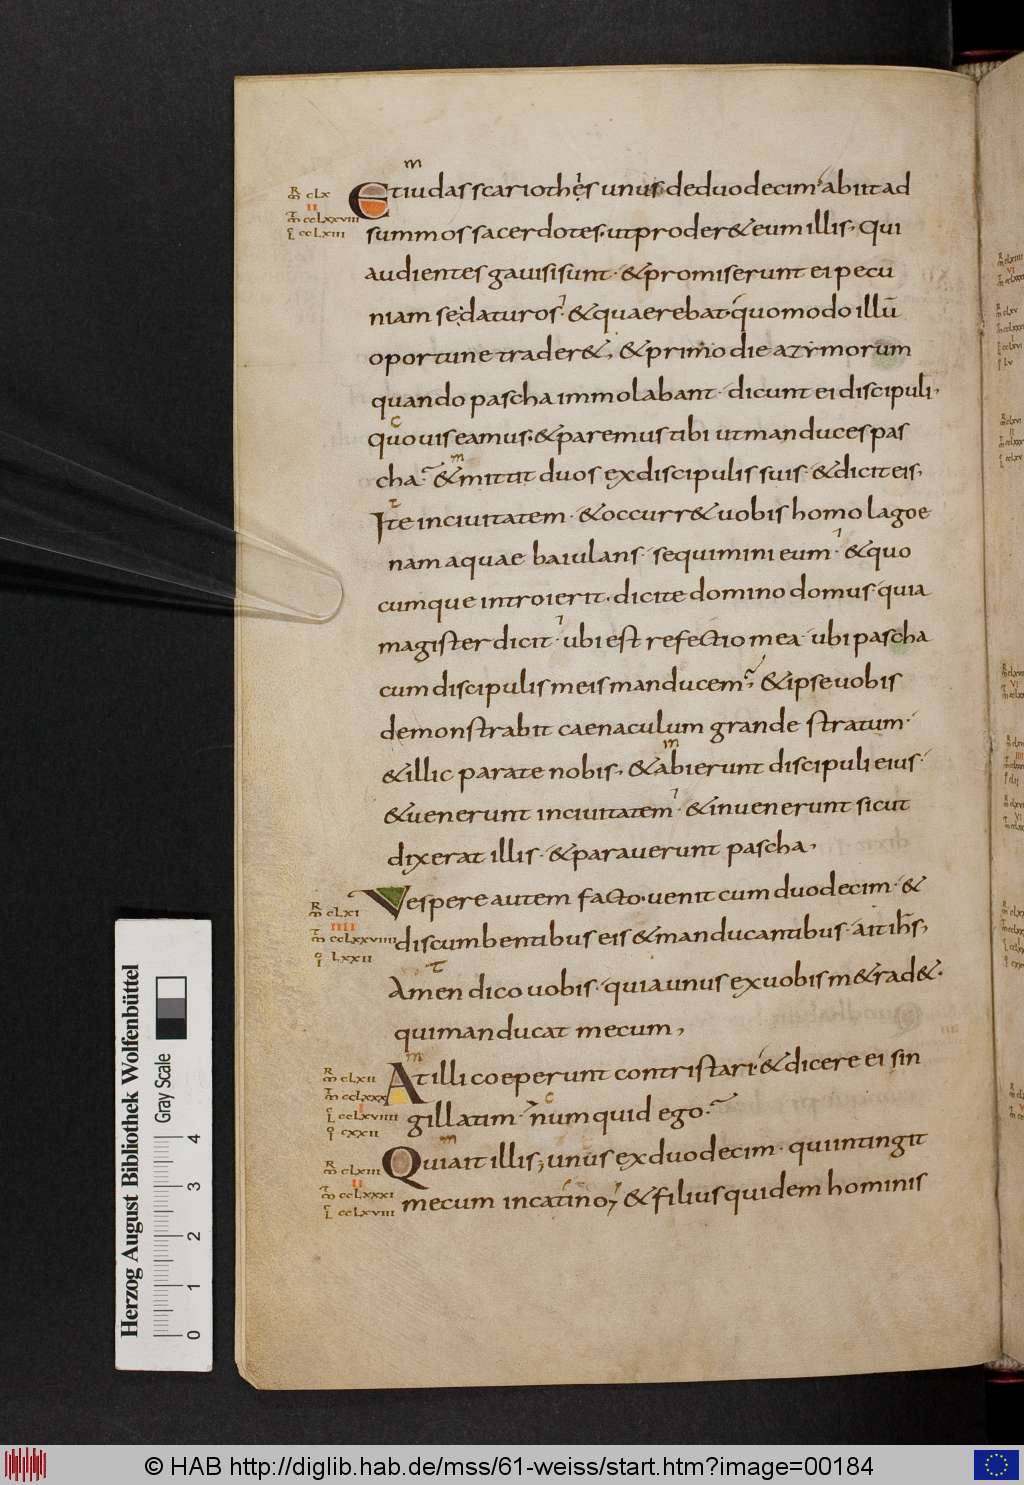 Et iudas scariothęs unus deduodecim abiit ad
summos sacerdotes, ut proder& eum illis, Qui
audientes gauisi sunt · & promiserunt ei pecu
niam se daturos · & quaerebat quomodo illū
oportune trader&, & primo die azymorum
quando pascha immolabant · dicunt ei discipuli,
quo uis eamus, & paremus tibi ut manduces pas
cha? & mittit duos ex discipulis suis · & dicit eis,
Ite inciuitatem · & occurr& uobis homo lagoe
nam aquae baiulans · sequimini eum · & quo
cumque introierit, dicite domino domus · quia
magister dicit · ubi est refectio mea · ubi pascha
cum discipulis meis manducem? & ipse uobis
demonstrabit caenaculum grande stratum ·
& illic parate nobis, & abierunt discipuli eius ·
& uenerunt inciuitatem · & inuenerunt sicut
dixerat illis · & parauerunt pascha,
R
m cLXI
IIII
m ccLXXVIIII
i LXXII
Vespere autem facto · uenit cum duodecim · &
discumbentibus eis & manducantibus · ait ih̅s,
Amen dico uobis · quia unus ex uobis me tradet ·
qui manducat mecum,
At illi coeperunt contristari · & dicere ei sin
gillatim · numquid ego?
Qui ait illis; unus ex duodecim · qui intingit
mecum in catino, & filius quidem hominis
R
m cLX
II
m ccLXXVIII
L ccLXIII
R
m cLXII
m ccLXXX
I
L ccLXVIIII
i cXXII
R
m cLXIII
II
m ccLXXXI
L ccLXVIII
Herzog August Bibliothek Wolfenbüttel
Gray Scale
0 1 2 3 4
© HAB http://diglib.hab.de/mss/61-weiss/start.htm?image=00184